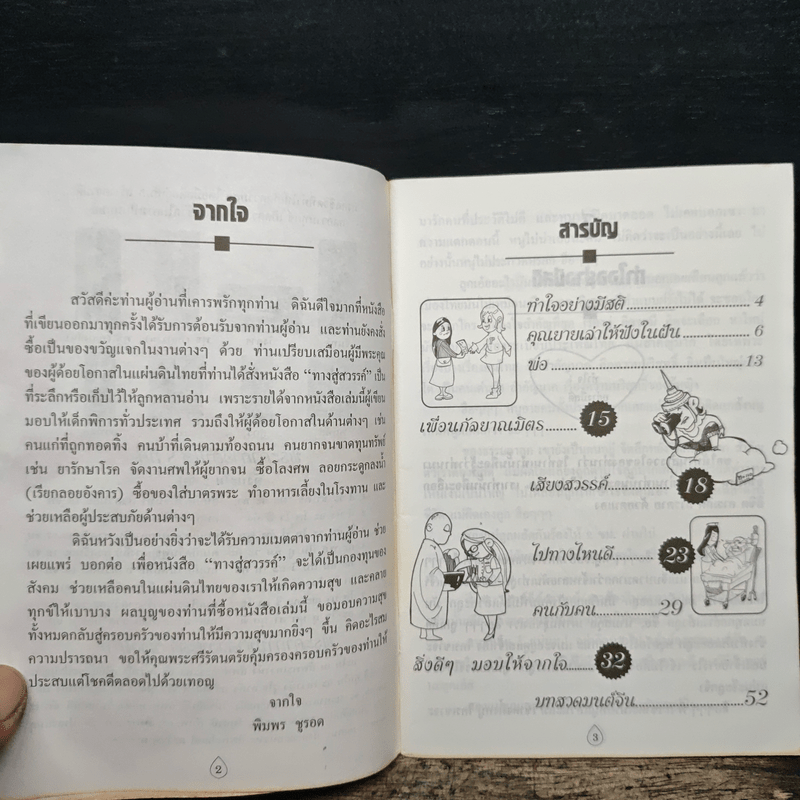 จากใจ
สวัสดีค่ะท่านผู้อ่านที่เคารพรักทุกท่าน ดิฉันดีใจมากที่หนังสือ
ที่เขียนออกมาทุกครั้งได้รับการต้อนรับจากท่านผู้อ่าน และท่านยังคงสั่ง
ซื้อเป็นของขวัญแจกในงานต่างๆ ด้วย ท่านเปรียบเสมือนผู้มีพระคุณ
ของผู้ด้อยโอกาสในแผ่นดินไทยที่ท่านได้สั่งหนังสือ “ทางสู่สวรรค์” เป็น
ที่ระลึกหรือเก็บไว้ให้ลูกหลานอ่าน เพราะรายได้จากหนังสือเล่มนี้ผู้เขียน
มอบให้เด็กพิการทั่วประเทศ รวมถึงให้ผู้ด้อยโอกาสในด้านต่างๆ เช่น
คนแก่ที่ถูกทอดทิ้ง คนบ้าที่เดินตามท้องถนน คนยากจนขาดทุนทรัพย์
เช่น ยารักษาโรค จัดงานศพให้ผู้ยากจน ซื้อโลงศพ ลอยกระดูกลงน้ำ
(เรียกลอยอังคาร) ซื้อของใส่บาตรพระ ทำอาหารเลี้ยงในโรงทาน และ
ช่วยเหลือผู้ประสบภัยด้านต่างๆ
ดิฉันหวังเป็นอย่างยิ่งว่าจะได้รับความเมตตาจากท่านผู้อ่าน ช่วย
เผยแพร่ บอกต่อ เพื่อหนังสือ “ทางสู่สวรรค์” จะได้เป็นกองทุนของ
สังคม ช่วยเหลือคนในแผ่นดินไทยของเราให้เกิดความสุข และคลาย
ทุกข์ให้เบาบาง ผลบุญของท่านที่ซื้อหนังสือเล่มนี้ ขอมอบความสุข
ทั้งหมดกลับสู่ครอบครัวของท่านให้มีความสุขมากยิ่งๆ ขึ้น คิดอะไรสม
ความปรารถนา ขอให้คุณพระศรีรัตนตรัยคุ้มครองครอบครัวของท่านให้
ประสบแต่โชคดีตลอดไปด้วยเทอญ
จากใจ
พิมพร ชูรอด
2
สารบัญ
ทำใจอย่างมีสติ 4
คุณยายเล่าให้ฟังในฝัน 6
พ่อ 13
เพื่อนกัลยาณมิตร 15
เสียงสวรรค์ 18
ไปทางไหนดี 23
คนกับคน 29
สิ่งดีๆ มอบให้จากใจ 32
บทสวดมนต์จีน 52
3